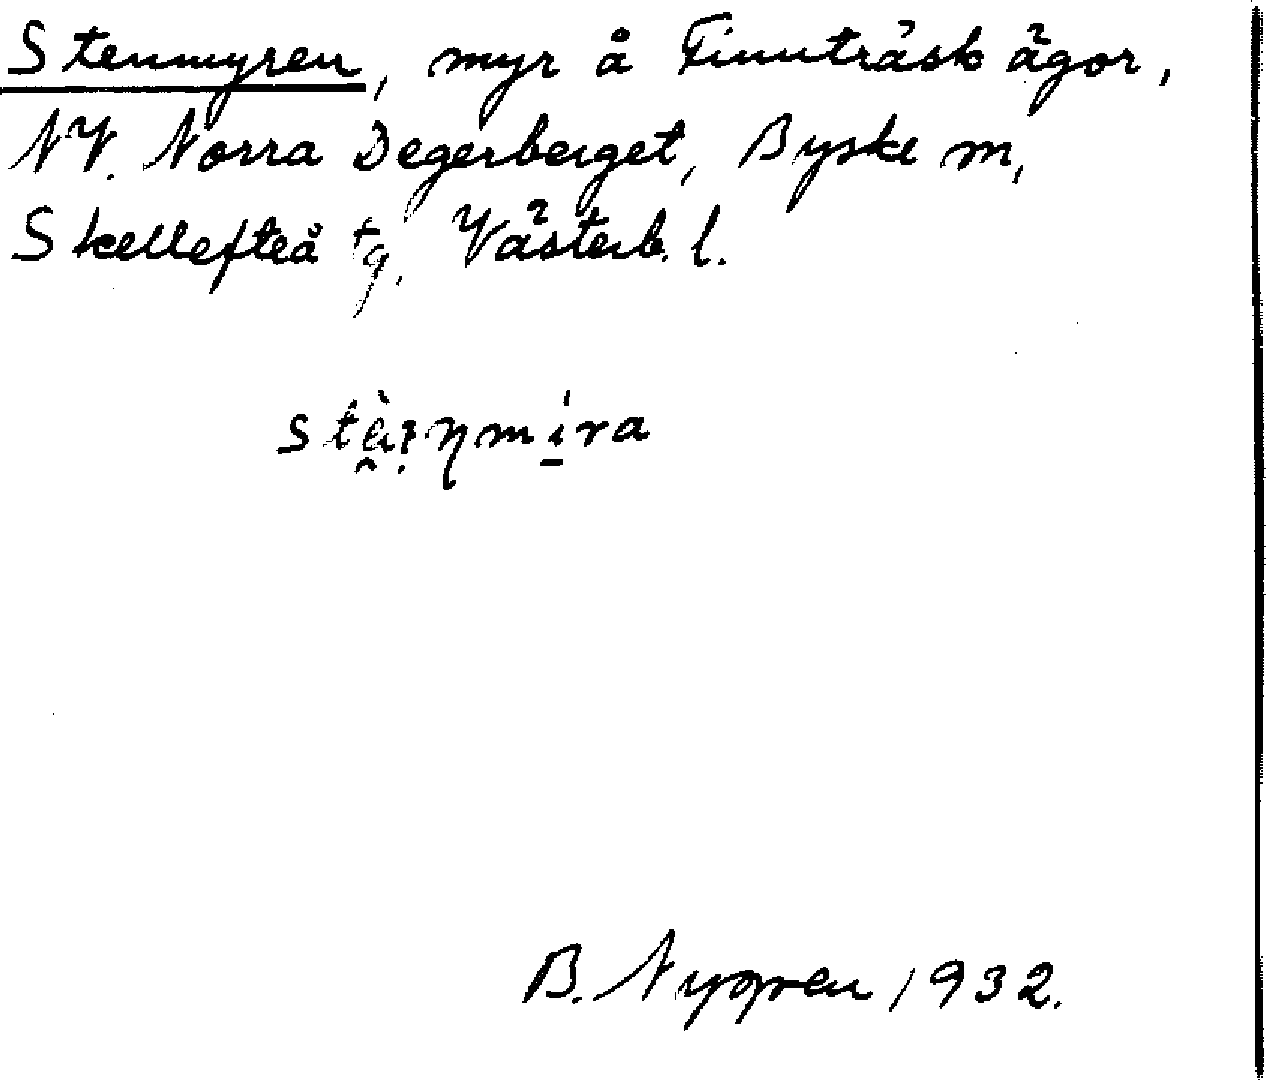 Stenmyren, myr å Finnträsk ägor,
NV. Norra Degerberget, Byske m,
Skellefteå tg, Västerb. l.
B. Nygren 1932.